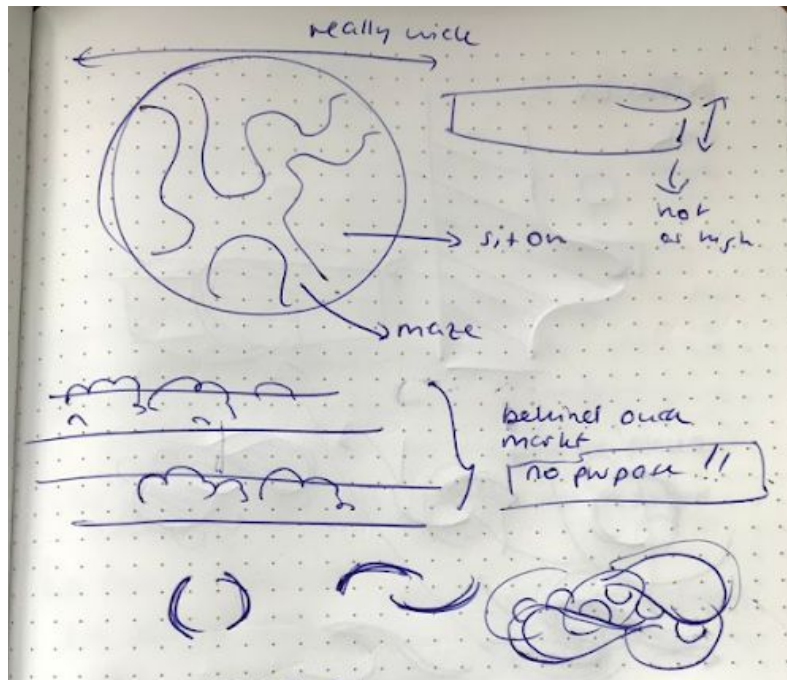 really wide
not
as high
sit on
maze
behind oude
markt
no purpose !!